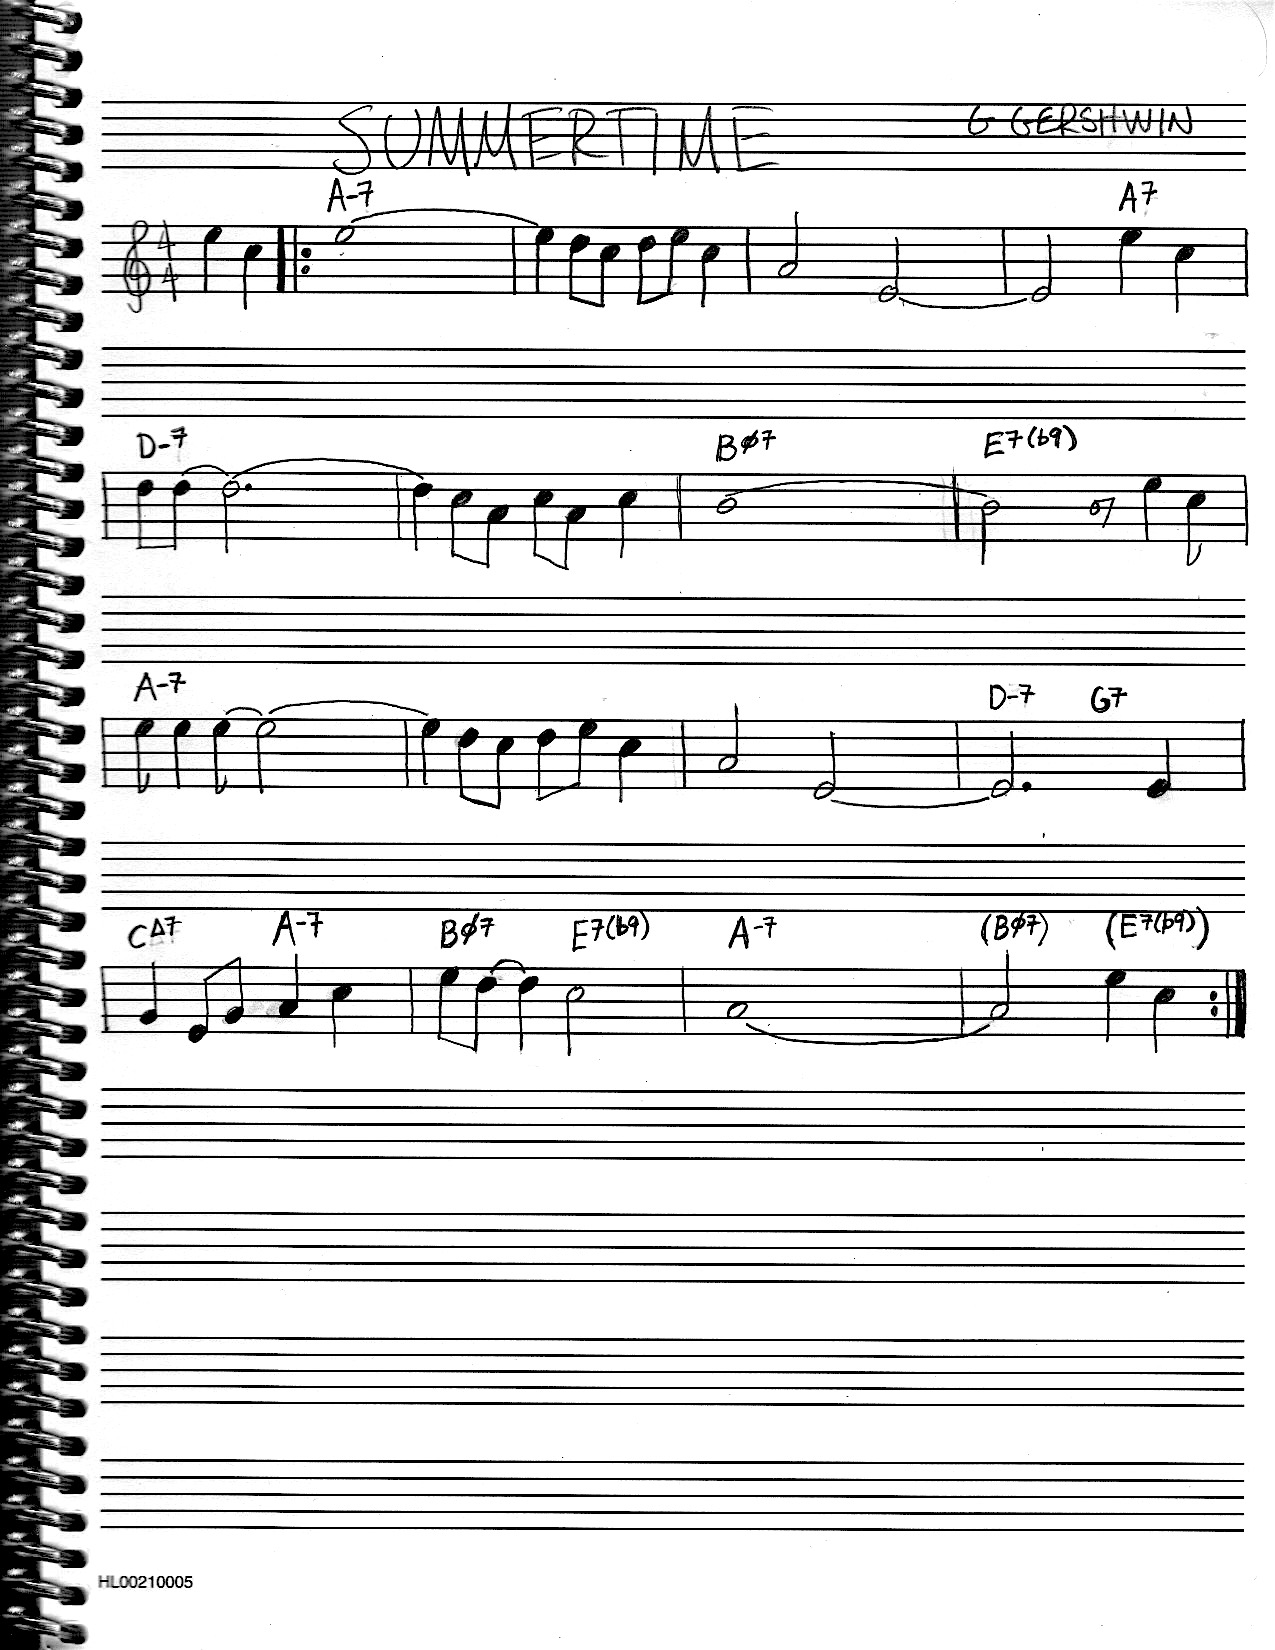 SUMMERTIME G GERSHWIN
A-7 A7
4
4
D-7 Bø7 E7(b9)
A-7 D-7 G7
C∆7 A-7 Bø7 E7(b9) A-7 (Bø7) (E7(b9))
HL00210005